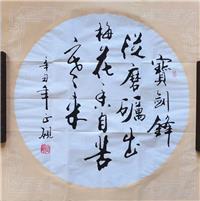 寶劍鋒
從磨礪出
梅花香自苦
寒来
辛丑年